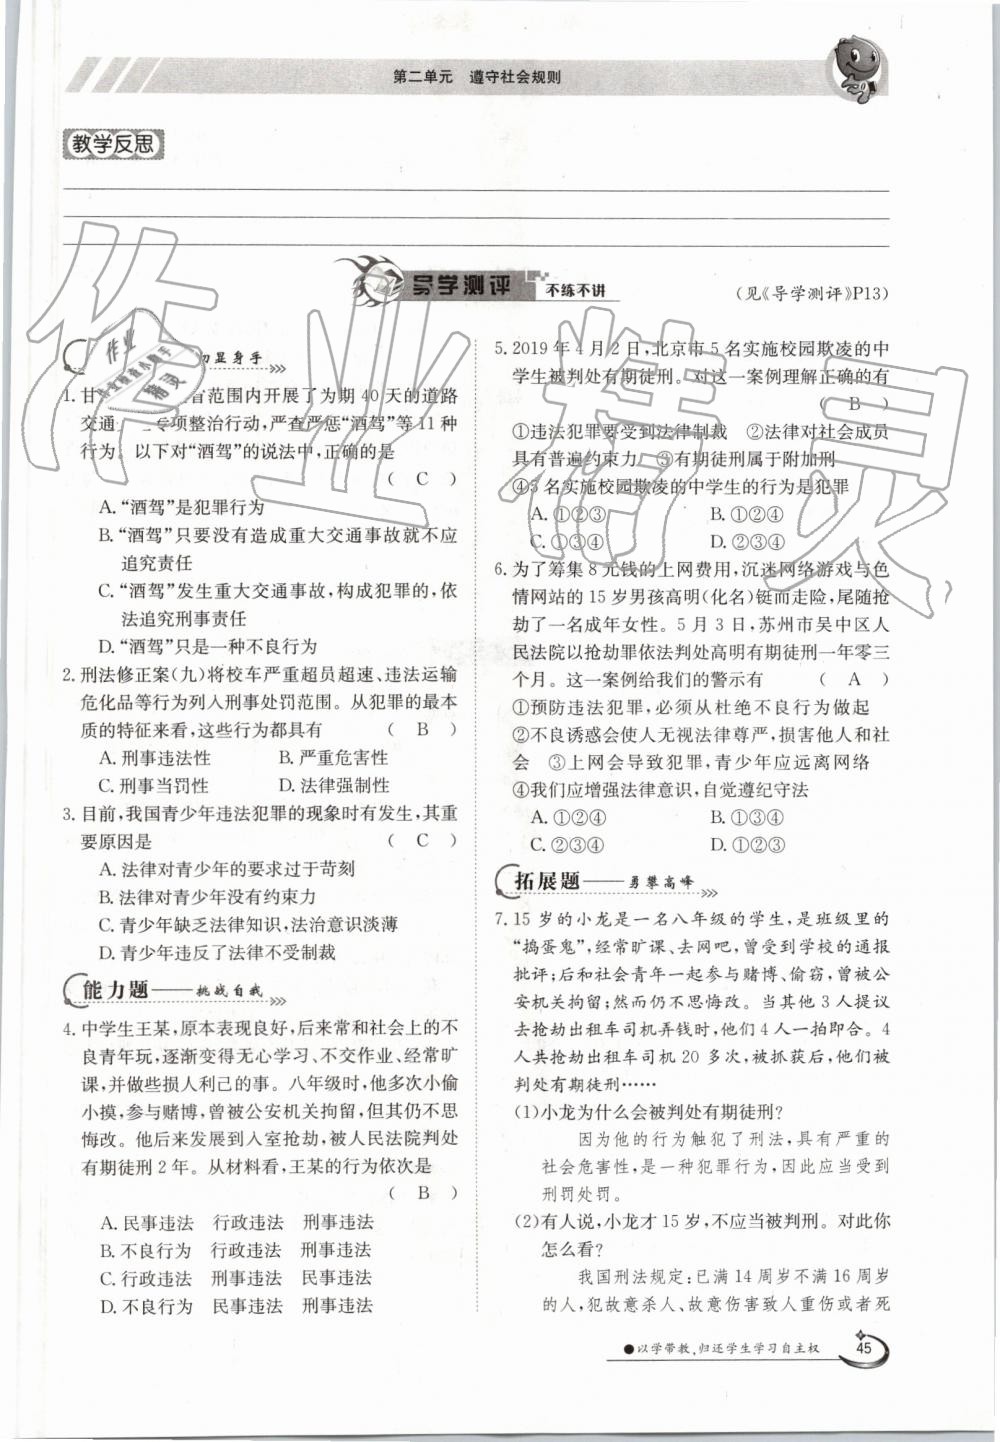 第二单元 遵守社会规则
教学反思
导学测评 不练不讲
(见《导学测评》P13)
初显身手
1. 甘 省范围内开展了为期 40 天的道路
交通 专项整治行动,严查严惩“酒驾”等 11 种
行为。以下对“酒驾”的说法中,正确的是
( C )
A. “酒驾”是犯罪行为
B. “酒驾”只要没有造成重大交通事故就不应
追究责任
C. “酒驾”发生重大交通事故,构成犯罪的,依
法追究刑事责任
D. “酒驾”只是一种不良行为
2. 刑法修正案(九)将校车严重超员超速、违法运输
危化品等行为列入刑事处罚范围。从犯罪的最本
质的特征来看,这些行为都具有 ( B )
A. 刑事违法性 B. 严重危害性
C. 刑事当罚性 D. 法律强制性
3. 目前,我国青少年违法犯罪的现象时有发生,其重
要原因是 ( C )
A. 法律对青少年的要求过于苛刻
B. 法律对青少年没有约束力
C. 青少年缺乏法律知识,法治意识淡薄
D. 青少年违反了法律不受制裁
能力题——挑战自我
4. 中学生王某,原本表现良好,后来常和社会上的不
良青年玩,逐渐变得无心学习、不交作业、经常旷
课,并做些损人利己的事。八年级时,他多次小偷
小摸,参与赌博,曾被公安机关拘留,但其仍不思
悔改。他后来发展到入室抢劫,被人民法院判处
有期徒刑 2 年。从材料看,王某的行为依次是
( B )
A. 民事违法 行政违法 刑事违法
B. 不良行为 行政违法 刑事违法
C. 行政违法 刑事违法 民事违法
D. 不良行为 民事违法 刑事违法
5. 2019 年 4 月 2 日,北京市 5 名实施校园欺凌的中
学生被判处有期徒刑。对这一案例理解正确的有
( B )
①违法犯罪要受到法律制裁 ②法律对社会成员
具有普遍约束力 ③有期徒刑属于附加刑
④5 名实施校园欺凌的中学生的行为是犯罪
A. ①②③ B. ①②④
C. ①③④ D. ②③④
6. 为了筹集 8 元钱的上网费用,沉迷网络游戏与色
情网站的 15 岁男孩高明(化名)铤而走险,尾随抢
劫了一名成年女性。5 月 3 日,苏州市吴中区人
民法院以抢劫罪依法判处高明有期徒刑一年零三
个月。这一案例给我们的警示有 ( A )
①预防违法犯罪,必须从杜绝不良行为做起
②不良诱惑会使人无视法律尊严,损害他人和社
会 ③上网会导致犯罪,青少年应远离网络
④我们应增强法律意识,自觉遵纪守法
A. ①②④ B. ①③④
C. ②③④ D. ①②③
拓展题——勇攀高峰
7. 15 岁的小龙是一名八年级的学生,是班级里的
“捣蛋鬼”,经常旷课、去网吧,曾受到学校的通报
批评;后和社会青年一起参与赌博、偷窃,曾被公
安机关拘留;然而仍不思悔改。当其他 3 人提议
去抢劫出租车司机弄钱时,他们 4 人一拍即合。4
人共抢劫出租车司机 20 多次,被抓获后,他们被
判处有期徒刑……
(1)小龙为什么会被判处有期徒刑?
因为他的行为触犯了刑法,具有严重的
社会危害性,是一种犯罪行为,因此应当受到
刑罚处罚。
(2)有人说,小龙才 15 岁,不应当被判刑。对此你
怎么看?
我国刑法规定:已满 14 周岁不满 16 周岁
的人,犯故意杀人、故意伤害致人重伤或者死
●以学带教,归还学生学习自主权
45
作业精灵